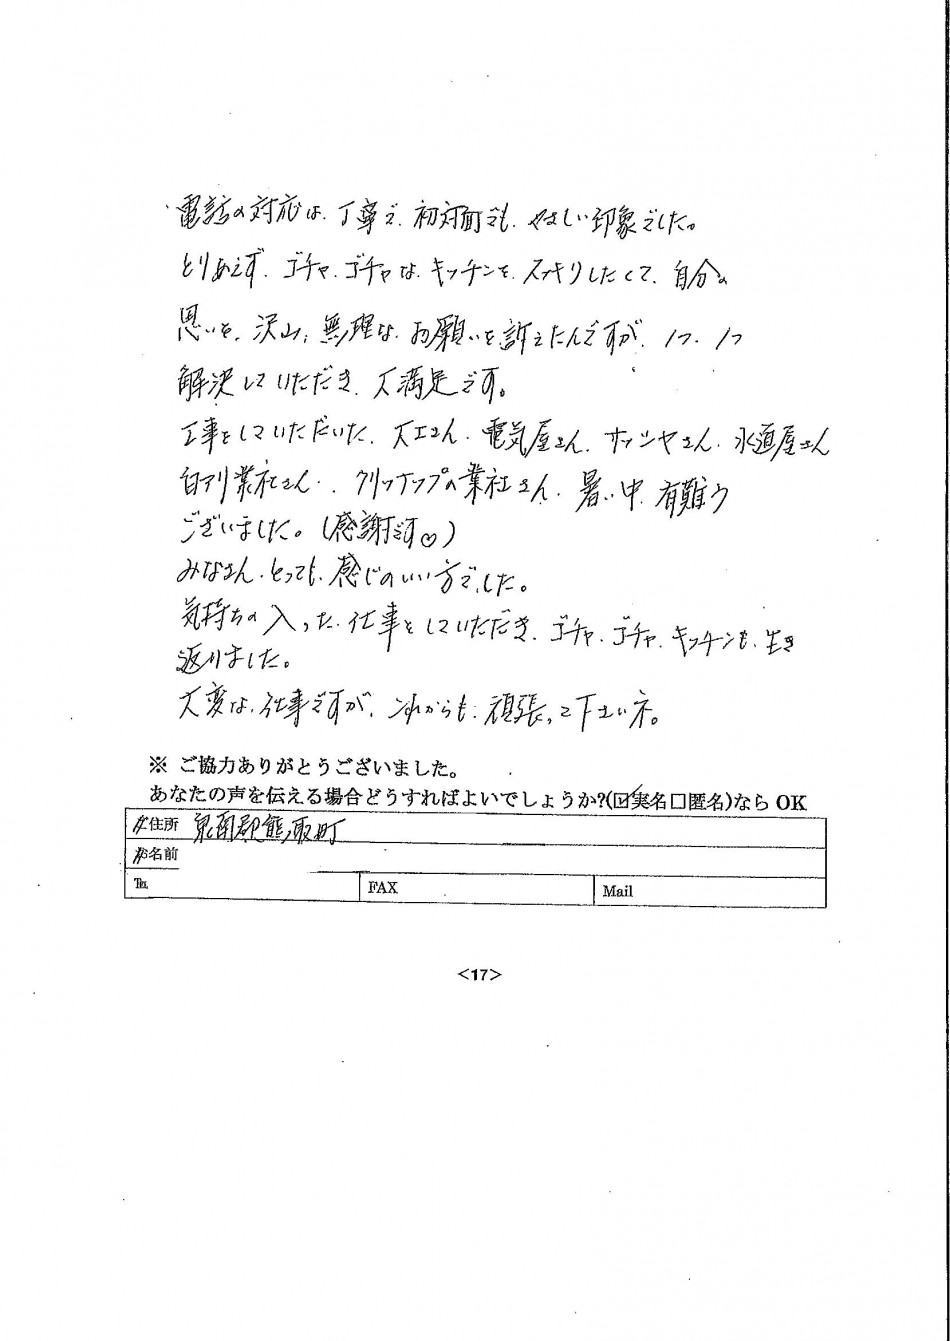 電話の対応は、丁寧で、初対面でも、やさしい印象でした。
とりあえず、ゴチャ、ゴチャな、キッチンを、スッキリしたくて、自分の
思いを、沢山、無理な、お願いを訴えたんですが、1つ、1つ
解決していただき、大満足です。
工事をしていただいた、大工さん、電気屋さん、サッシヤさん、水道屋さん
白アリ業社さん、クリナップの業社さん、暑い中、有難う
ございました。(感謝です♡)
みなさん、とっても、感じのいい方でした。
気持ちの入った、仕事をしていただき、ゴチャ、ゴチャ、キッチンも、生き
返りました。
大変な、仕事ですが、これからも、頑張って下さいネ。
※ ご協力ありがとうございました。
あなたの声を伝える場合どうすればよいでしょうか?(☑実名☐匿名)なら OK
ご住所 泉南郡熊取町
お名前
℡ FAX Mail
<17>